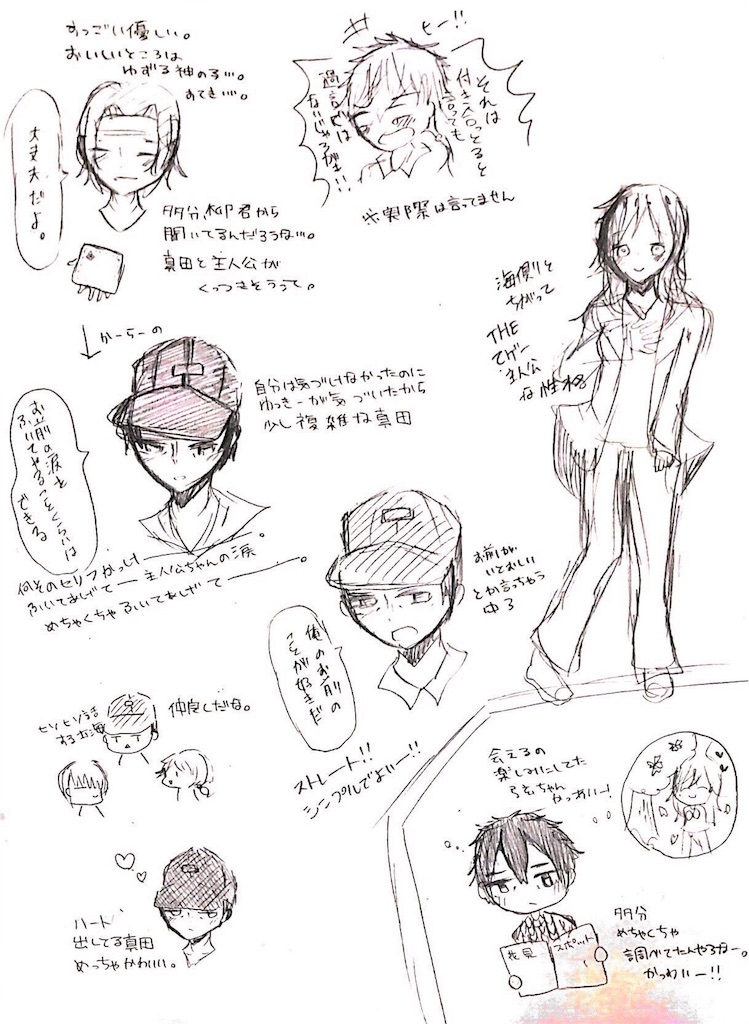 すっごい優しい。
おいしいところは
ゆずる神の子…。
すてき…。
大丈夫だよ。
ヒー!!
それは
付き合っとると
言っても
過言では
ないじゃろが!!
※実際は言ってません
多分、柳君から
聞いてるんだろうな…。
真田と主人公が
くっつきそうって。
海側と
ちがって
THE
てげー
主人公
な性格
↓かーらーの
自分は気づけなかったのに
ゆっきーが気づいたから
少し複雑な真田
お前の涙を
ふいてやることくらいは
できる
何そのセリフかっけー
ふいてあげてー主人公ちゃんの涙。
めちゃくちゃふいてあげてー。
お前が
いとおしい
とか言っちゃう
ゆる
俺のお前の
ことが好きだ
ストレート!!
シンプルでよいー!!
ヒソヒソ話
する立海
仲良しだね。
ハート
出してる真田
めっちゃかわいい。
会えるの
楽しみにしてた
弦ちゃん
かっわいー!
花見
スポット
多分
めちゃくちゃ
調べてたんやろなー。
かっわいー!!